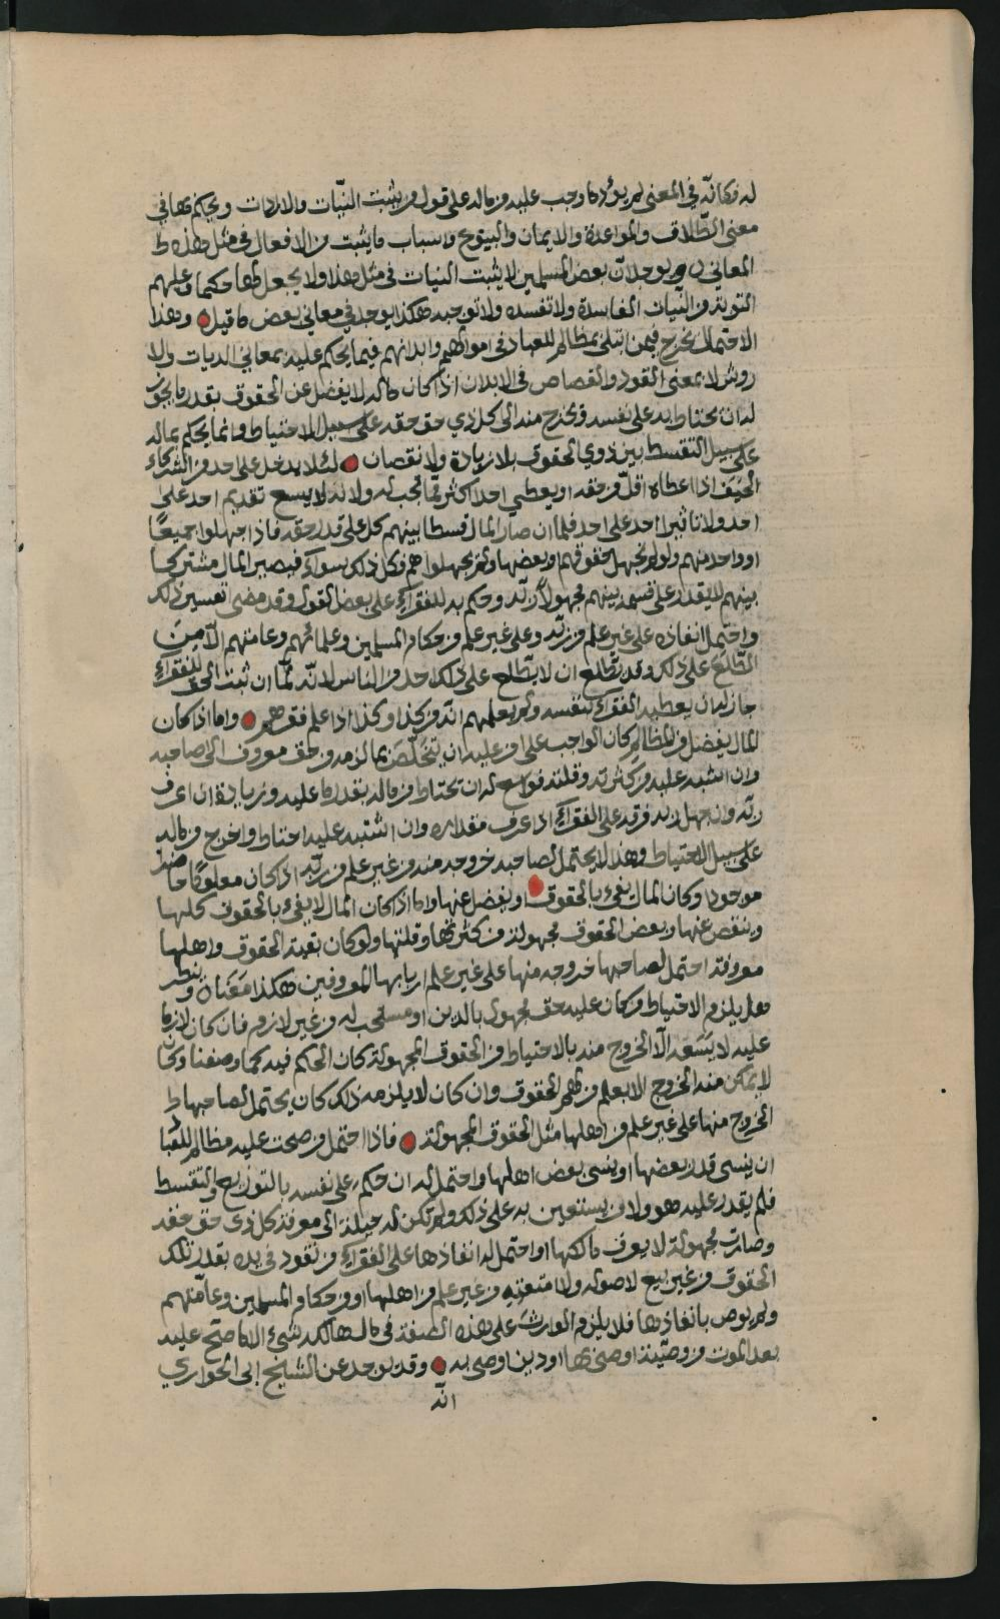 له فكانه في المعنى لم يؤد ما وجب عليه من ماله على قول من يثبت النيّات والارادات ويحكم بها في
معنى الطلاق والمواعدة والايمان والبيوع واسباب ما يثبت من الافعال في مثل هذه
المعاني ويوجد ان بعض المسلمين لا يثبت النيات في مثل هذا ولا يجعل لها حكما وعليهم
التوبة من النيات الفاسدة ولا تفسده ولا توجبه هكذا يوجد في معاني بعض ما قيل وهذا
الاحتمال يخرج فيمن ابتلي بمظالم للعباد في اموالهم وابدانهم فيما يحكم عليه بمعاني الديات والا
روش لا بمعنى القود والقصاص في الابدان اذا كان ماله لا يفضل عن الحقوق بقدر ما يجوز
له ان يحتاط به على نفسه ويخرج منه الى كل ذي حق حقه على سبيل الاحتياط وانما يحكم بماله
على سبيل التقسط بين ذوي الحقوق بلا زيادة ولا نقصان لئلا يدخل على احد من الشركاء
الحيف اذا اعطاه اقل من حقه او يعطي احدا اكثر مما يجب له ولانه لا يسع تقديم احد على
احد ولا تأثير احد على احد فلما ان صار المال قسطا بينهم كل على قدر حقه فاذا جهلوا جميعًا
او واحد منهم ولو لم يجهل حقوقهم او بعضها ولم يجهلوا هم فكل ذلك سواء فيصير المال مشتركا
بينهم لا يقدر على قسمه بينهم مجهولاً ربّه وحكم به للفقراء على بعض القول وقد مضى تفسير ذلك
واحتمل انفاذه على غير علم من ربّه وعلى غير علم من حكام المسلمين وعلمائهم وعامتهم الا من
اطّلع على ذلك وقد يطلع ان لا يطّلع على ذلك احد من الناس لانه لمّا ان ثبت الحق للفقراء
جاز له ان يعطيه الفقراء بنفسه ولم يعلمهم انه من كذا وكذا اذا علم فقرهم واما اذا كان
المال يفضل من المظالم كان الواجب على من عليه ان يتخلّص بما لزمه من حق معروف الى صاحبه
وان اشتبه عليه من كثرته وقلته فواسع له ان يحتاط من ماله بقدر ما عليه وزيادة ان عرف
ربّه وان جهل ربه فرقه على الفقراء اذا عرف مقداره وان اشتبه عليه احتاط واخرج من ماله
على سبيل الاحتياط وهذا لا يحتمل لصاحبه خروجه منه من غير علم من ربّه اذا كان معلومًا
موجودا وكان المال يفي بالحقوق او يفضل عنها واما اذا كان المال لا يفي بالحقوق كلها
وينقص عنها وبعض الحقوق مجهولة من كثرتها وقلتها ولو كان بقية الحقوق واهلها
معروفة احتمل لصاحبها خروجه منها على غير علم اربابها المعروفين هكذا معناه وينظر
هل يلزم الاحتياط من كان عليه حق مجهول بالدين او مستحب له من غير لازم فان كان لازما
عليه لا يَسَعه الّا الخروج منه بالاحتياط من الحقوق المجهولة كان الحكم فيه كما وصفنا وكان
لا يمكن منه الخروج الا بعلم من لهم الحقوق وان كان لا يلزمه ذلك كان يحتمل لصاحبها
الخروج منها على غير علم من اهلها مثل الحقوق المجهولة فاذا احتمل من صحت عليه مظالم للعبا
ان ينسى قدر بعضها او ينسى بعض اهلها واحتمل له ان حكم على نفسه بالتوزيع والتقسط
فلم يقدر عليه هو ولا من يستعين به على ذلك ولم تكن له حيلة الى معرفة كل ذي حق حقه
وصارت مجهولة لا يعرف مالكها او احتمل له انفاذها على الفقراء من نقود في يده بقدر تلك
الحقوق من غير بيع لاصوله ولا امتعته من غير علم من اهلها او من حكام المسلمين وعامتهم
ولم يوص بانفاذها فلا يلزم الوارث على هذه الصفة في مال هالكه شيء الا ما صح عليه
بعد الموت من وصيّة اوصى بها او دين اوصى به وقد يوجد عن الشيخ ابي الحواري
انه